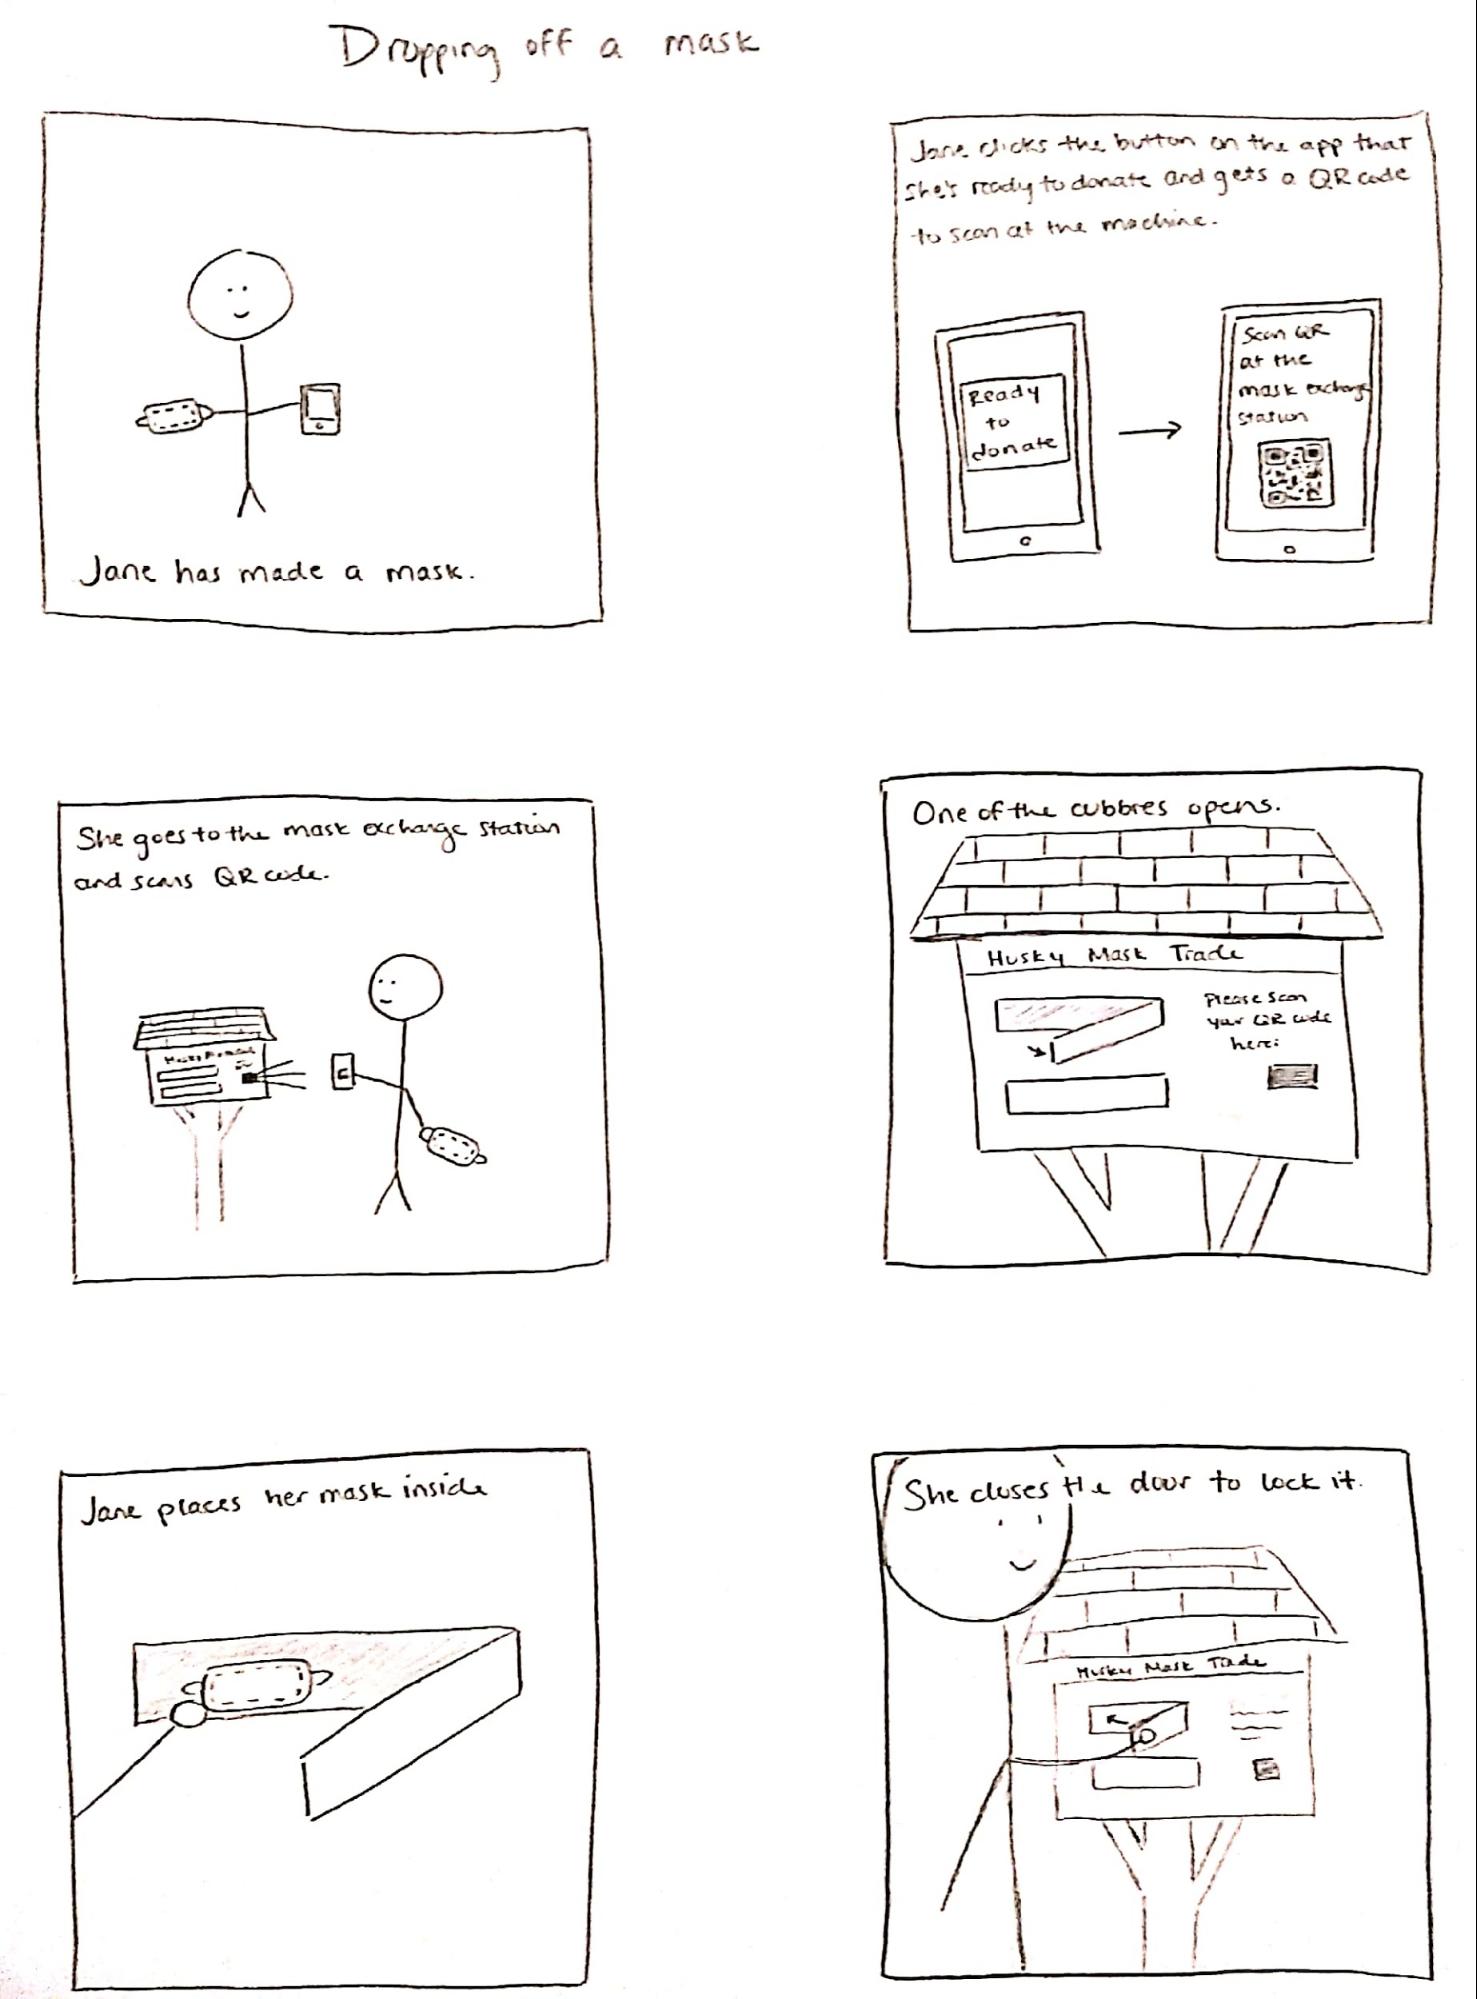 Dropping off a mask
Jane has made a mask.
Jane clicks the button on the app that
she's ready to donate and gets a QR code
to scan at the machine.
Ready
to
donate
Scan QR
at the
mask exchange
station
She goes to the mask exchange station
and scans QR code.
One of the cubbies opens.
Husky Mask Trade
Please scan
your QR code
here:
Jane places her mask inside
She closes the door to lock it.
Husky Mask Trade